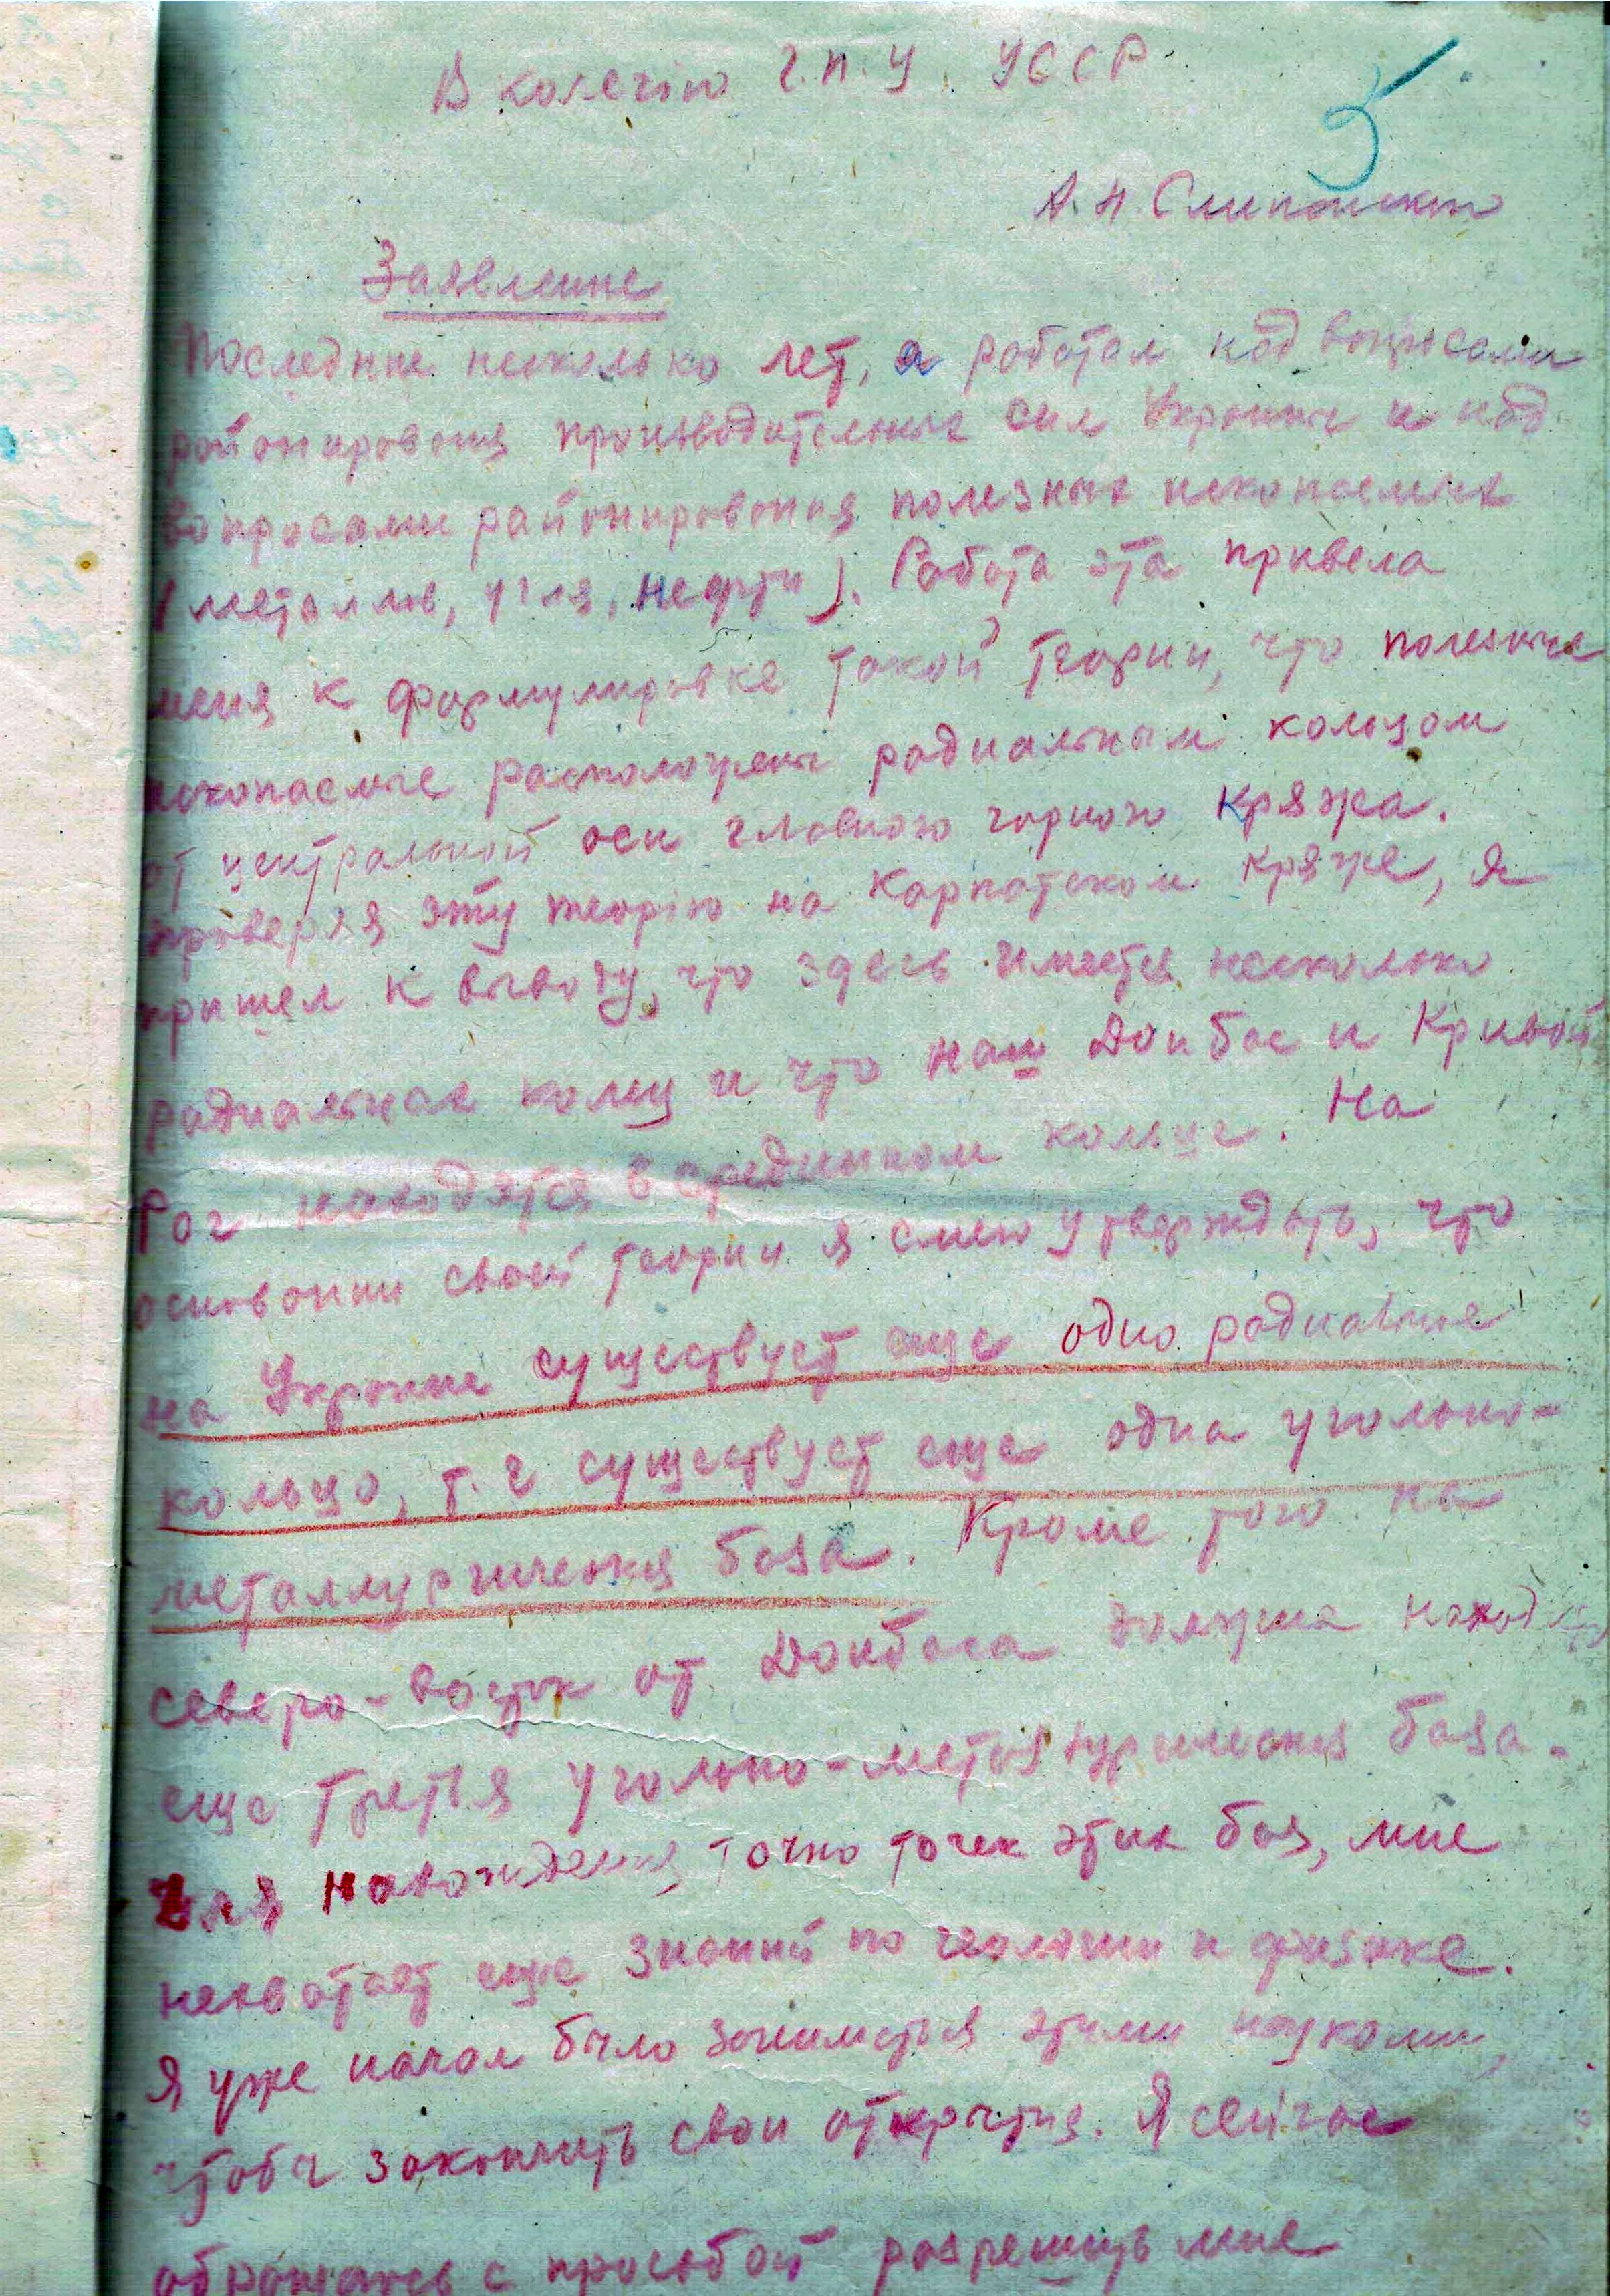 В колегію Г.П.У. УССР
5
А. Н. Слипанского
Заявление
Последние несколько лет, я работал над вопросами
районирования производительных сил Украины и над
вопросами районирования полезных ископаемых
(металлов, угля, нефти). Работа эта привела
меня к формулировке такой теории, что полезные
ископаемые расположены радиальным кольцом
от центральной оси главного горного кряжа.
Проверяя эту теорію на Карпатском кряже, я
пришел к выводу, что здесь имеется несколько
радиальных колец и что наш Донбас и Кривой
Рог находятся в срединном кольце. На
основании своей теории я смею утверждать, что
на Украине существует еще одно радиальное
кольцо, т. е существует еще одна угольно-
металлургическая база. Кроме того на
северо-восток от Донбаса должна находится
еще третья угольно-металургическая база.
Для нахождения точно точек этих баз, мне
нехватает еще знаний по геологии и физике.
Я уже начал было заниматься этими науками,
чтобы закончить свои открытия. Я сейчас
обращаюсь с просьбой разрешить мне